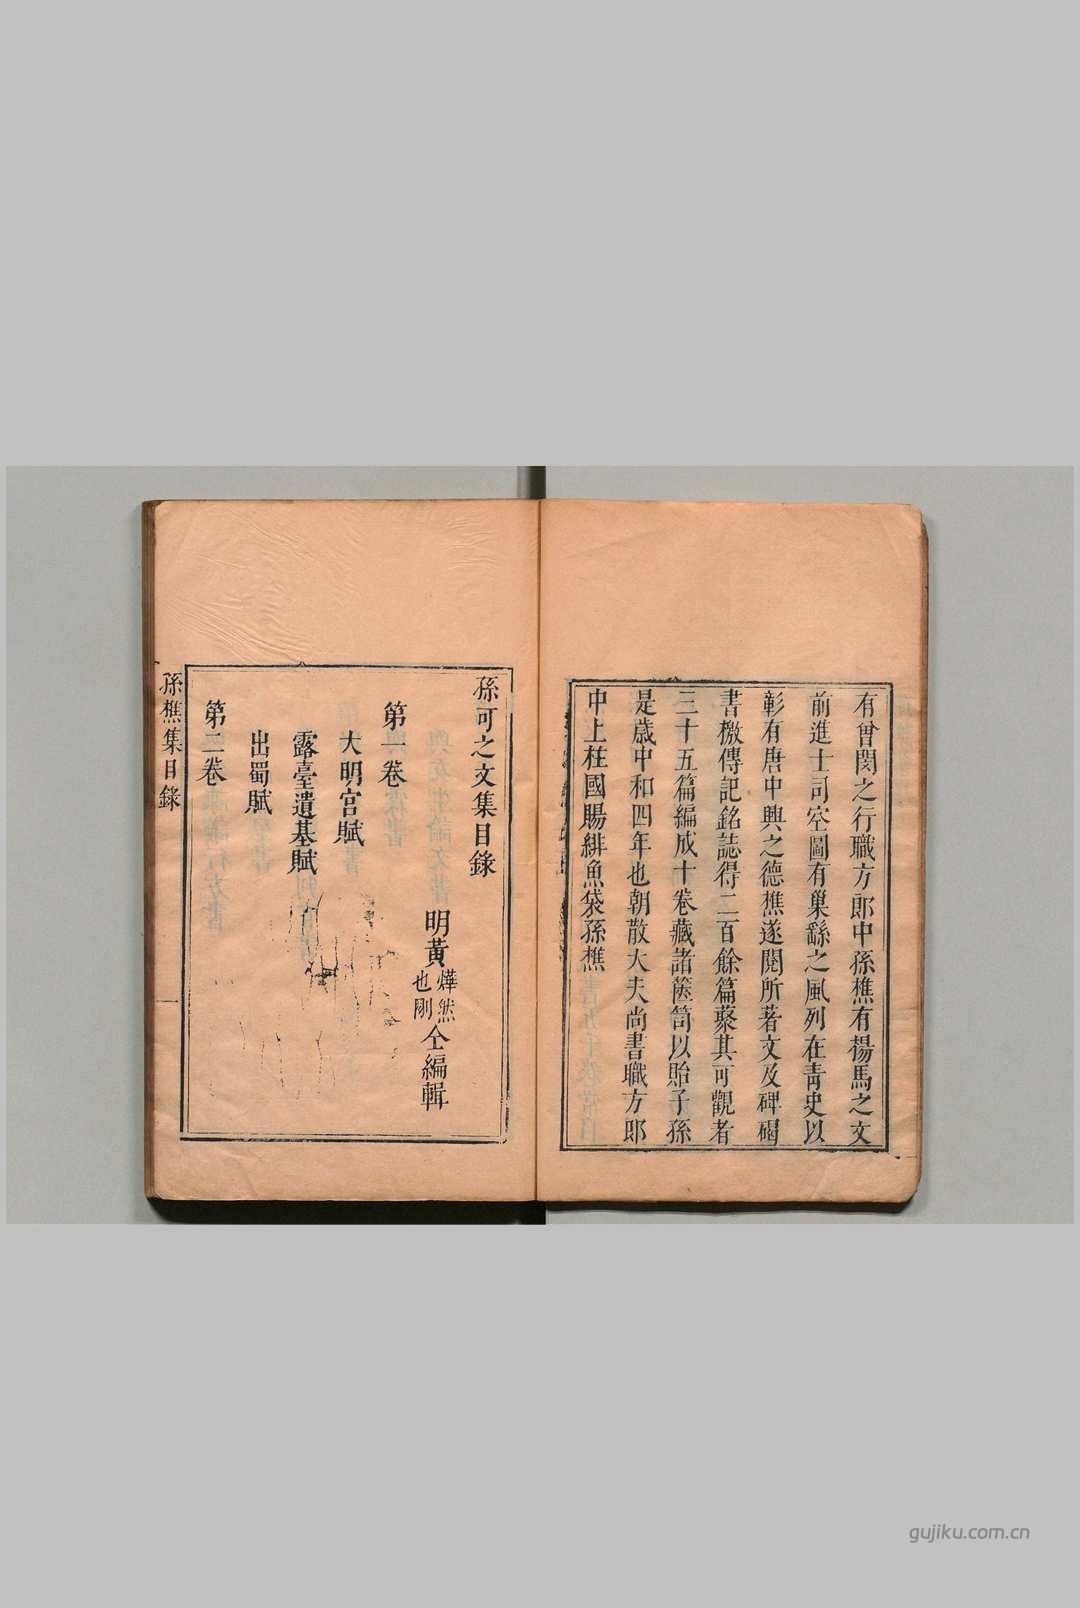 有曾閔之行職方郎中孫樵有揚馬之文
前進士司空圖有巢繇之風列在靑史以
彰有唐中興之德樵遂閱所著文及碑碣
書檄傳記銘誌得二百餘篇蕞其可觀者
三十五篇編成十卷藏諸篋笥以貽子孫
是歲中和四年也朝散大夫尚書職方郎
中上柱國賜緋魚袋孫樵
孫可之文集目錄
明黃燁然也剛仝編輯
第一卷
大明宮賦
露臺遺基賦
出蜀賦
第二卷
孫樵集目錄
gujiku.com.cn